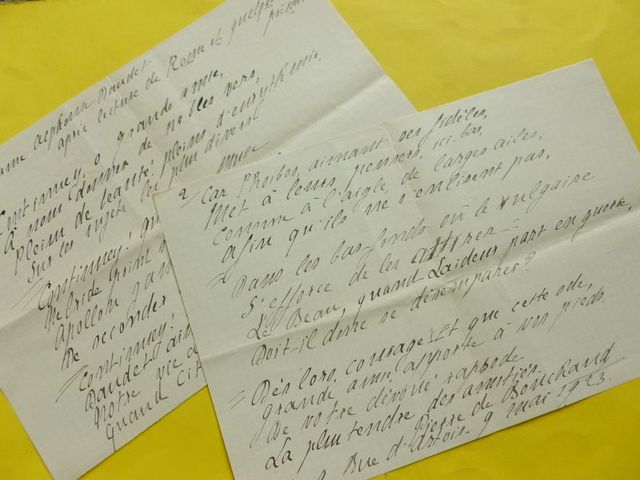 Alphonse Daudet
après lecture de Rome et quelques
Continuez, o grande amie,
à nous donner de nobles vers,
pleins de beauté, pleins d'eurythmie
Sur les sujets les plus divers
Continuez,
Apollon
De seconder
Continuez,
Daudet
Notre vie
Quand
2
Car Phoibos, aimant ses fidèles,
Met à leurs pensers, ici-bas,
Comme à l'aigle de larges ailes,
Afin qu'ils ne s'enlisent pas,
Dans les bas-fonds où le vulgaire
S'efforce de les attirer =
Le Beau, quand Laideur part en guerre,
Doit-il donc se désemparer?
Dès lors, courage! Et que cette ode,
Grande amie, apporte à vos pieds
De votre dévoué rapsode
La plus tendre des amitiés.
Pierre de Bouchaud
Rue d'Artois. 9 mai 1923.